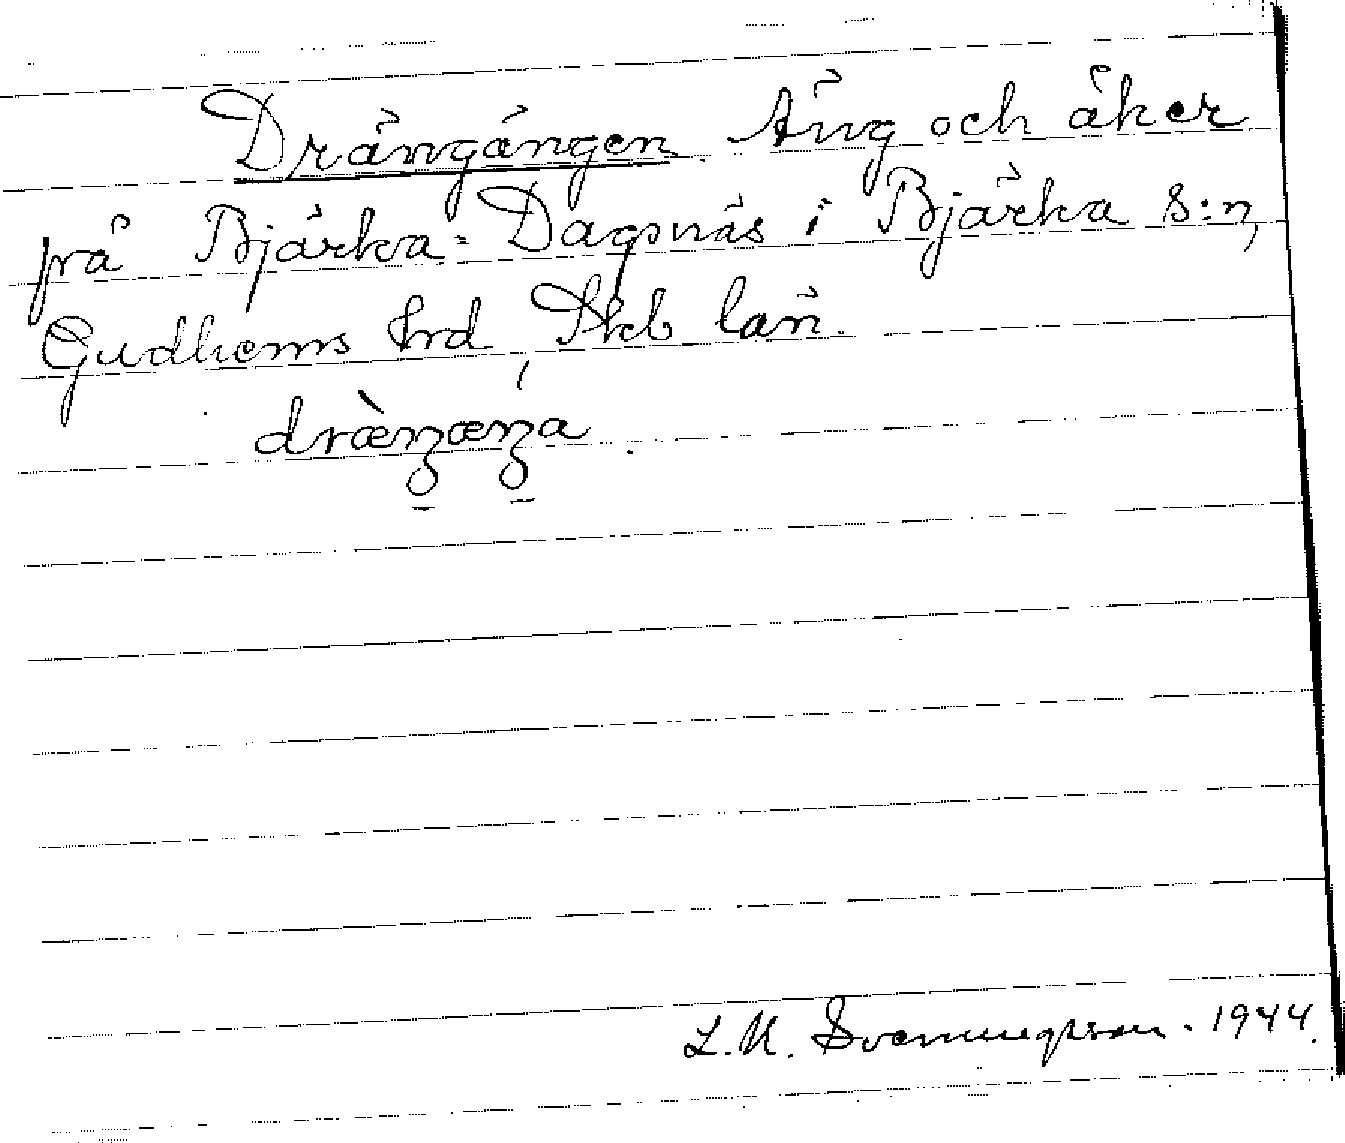 Drängängen. Äng och åker
på Bjärka-Dagsnäs i Bjärka s:n,
Gudhems hrd, Skb län.
dræ̀ŋæŋa.
L.M. Svenningsson. 1944.